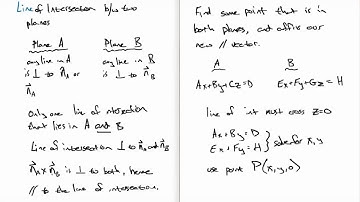 Line of Intersection b/w two planes
Plane A
any line in A is ⊥ to n⃗A or n⃗A
Plane B
any line in B is ⊥ to n⃗B
Only one line of intersection
that lies in A and B
Line of intersection ⊥ to n⃗A and n⃗B
n⃗A × n⃗B is ⊥ to both, hence
// to the line of intersection.
Find some point that is in
both planes, and affix our
new // vector.
A B
Ax+By+Cz=D Ex+Fy+Gz=H
line of int must cross z=0
Ax+By=D
Ex+Fy=H } solve for x,y
use point P(x,y,0)